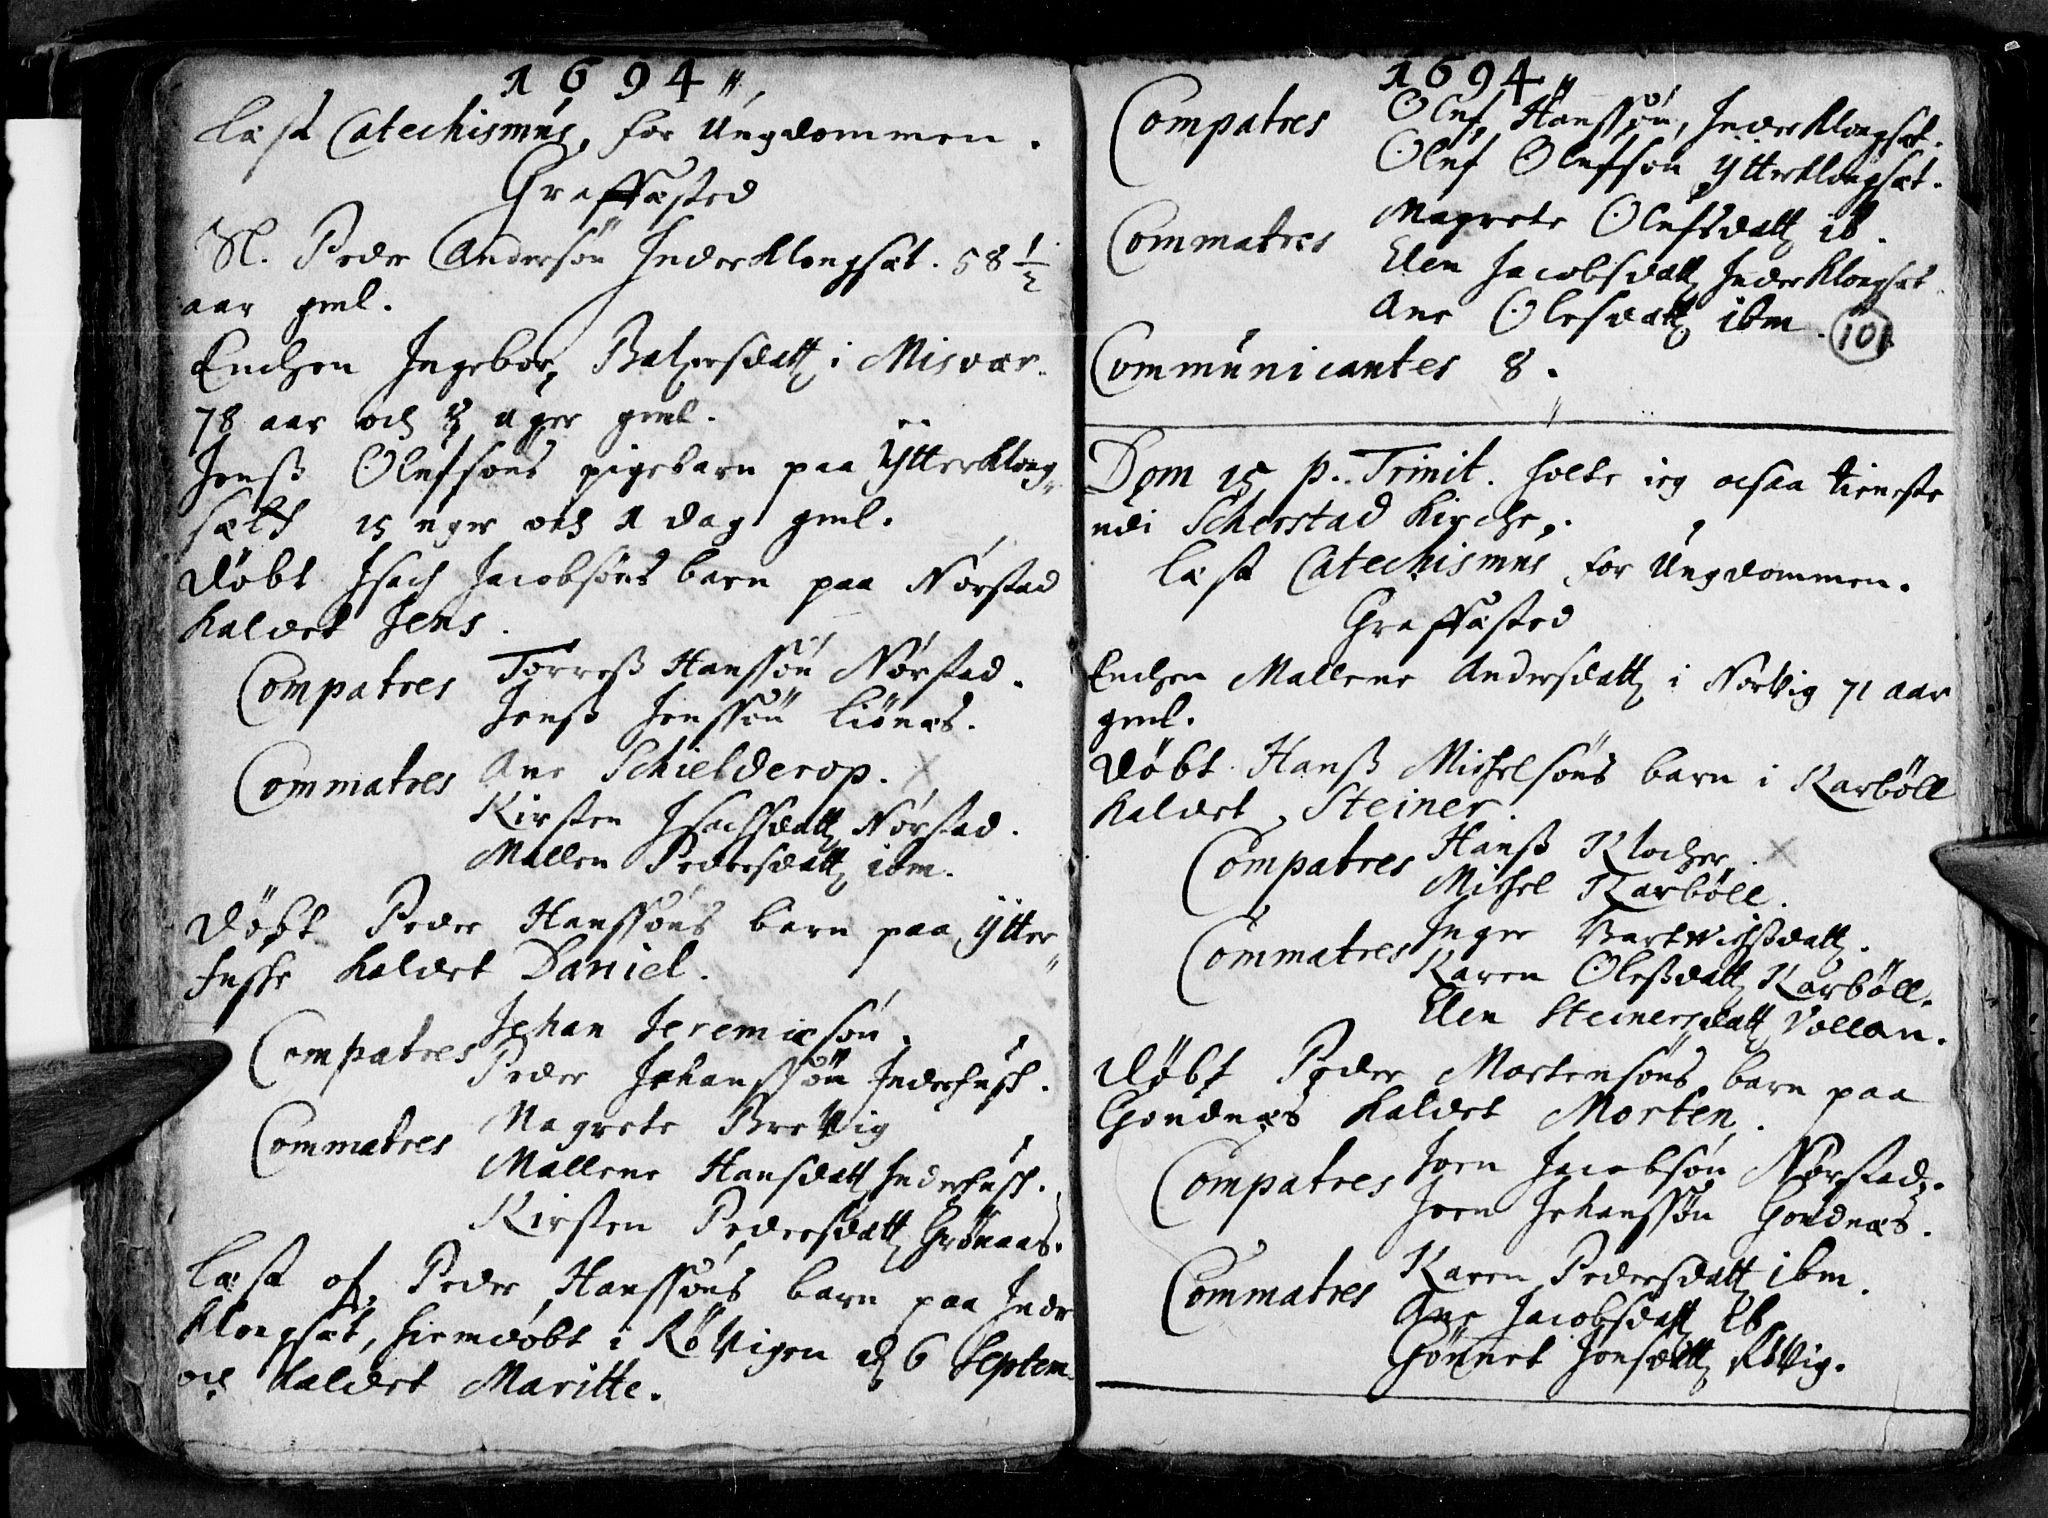 1694
Læst Catechismus, for Ungdommen.
Graffæsted
Sl. Peder Andersøn Inderklongsæt. 58 1/2
aar gml.
Enchen Ingebor, Baltzersdatt i Misvær.
78 aar och uger gml.
Jenß Olufsøns pigebarn paa Ytterklong
sæth 15 uger och 1 dag gml.
Døbt Isach Jacobsøns barn paa Nørstad
kaldet Jens.
Compatres Torreß Hanssøn Nørstad.
Jenß Jenssøn Liønæs.
Commatres Ane Schielderop.
Kirsten Isachsdatt Nørstad.
Mallen Pedersdatt ibm.
Døbt Peder Hanssøns barn paa Ytter
fuske kaldet Daniel.
Compatres Johan Jeremiesøn.
Peder Johanssøn Inderfusk.
Commatres Magrete Brevig
Mallene Hansdatt Inderfusk.
Kirsten Pedersdatt Grønaas.
Læst of, Peder Hanssøns barn paa Inder
klongsæt, hiemdøbt i Røvigen d 6 Septem.
och kaldet Maritte.
1694
Compatres Oluf Hanssøn, Inderklongsæt.
Oluf Olufsøn Ytterklongsæt.
Commatres Magrete Olufsdatt ib.
Elen Jacobsdatt Inderklongsæt
Ane Olesdatt ibm.
101
Communicantes 8.
Dom 15 p. Trinit. holte ieg ocsaa tieneste
udi Scherstad Kirche.
Læst Catechismus for Ungdommen.
Graffæsted
Enchen Mallene Andersdatt i Norvig 71 aar
gml.
Døbt Hanß Michelsøns barn i Karbøll
kaldet Steiner.
Compatres Hanß Klocher.
Michel Karbøll.
Commatres Inger Hartvichsdatt.
Karen Oleßdatt Karbøll.
Elen Steinersdatt Vollan.
Døbt Peder Mortensøns barn paa
Godnæs kaldet Morten.
Compatres Joen Jacobsøn Nørstad.
Joen Johanssøn Godnæs.
Commatres Karen Pedersdatt ibm.
Ane Jacobsdatt ib
Gønnet Jonsdatt Røvig.